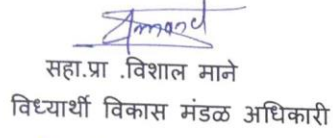 सहा.प्रा .विशाल माने
विध्यार्थी विकास मंडळ अधिकारी